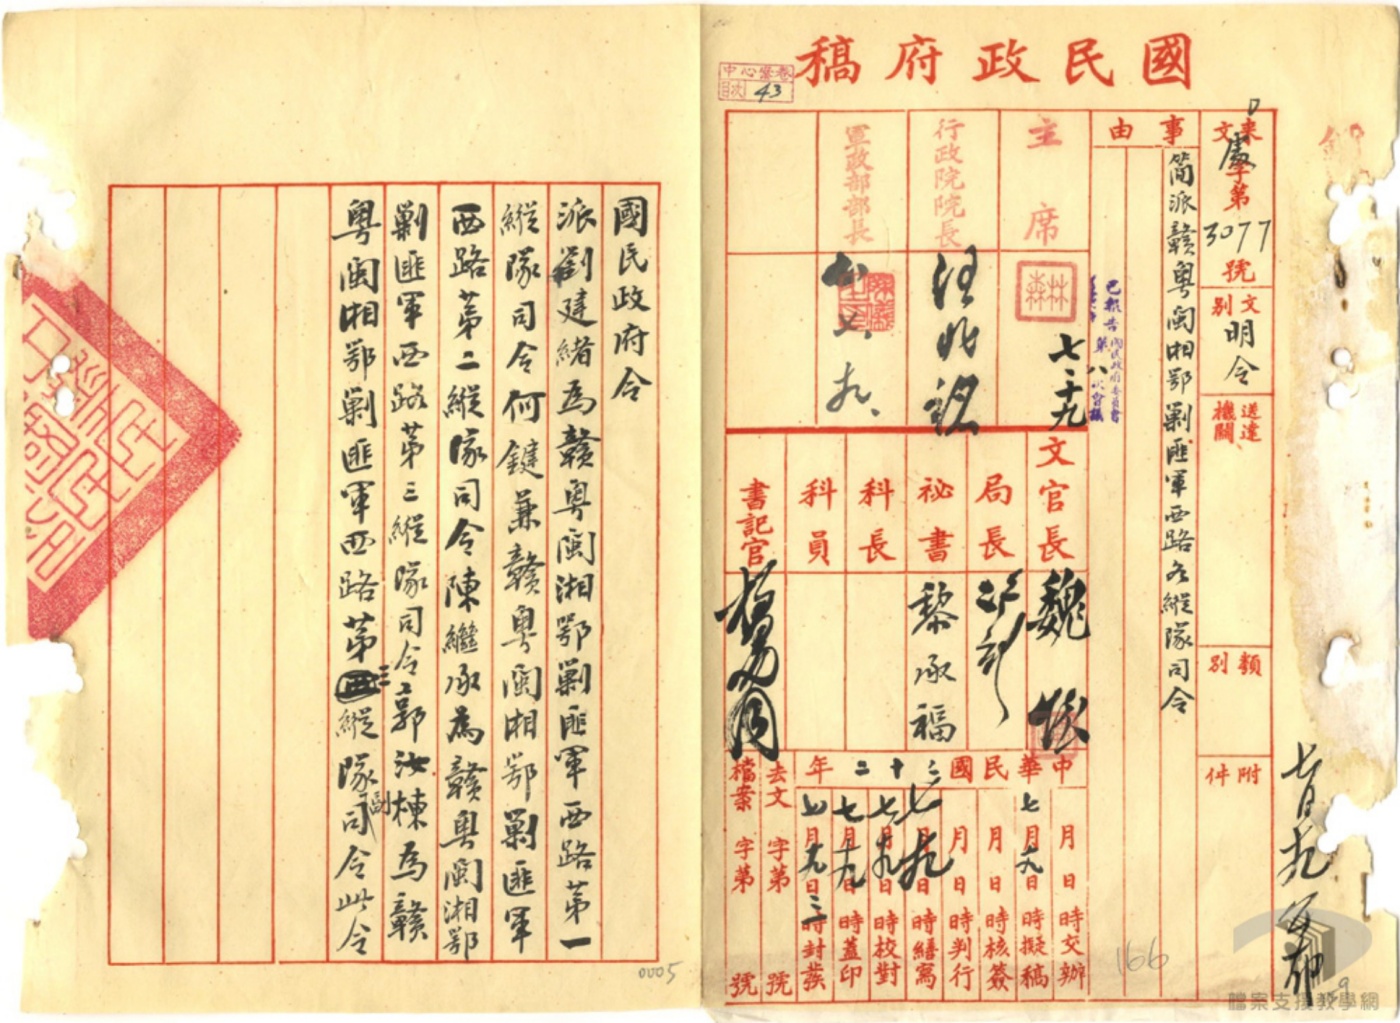 國民政府稿
中心彙卷
目次 43
來文 處字第3077號
文別 明令
送達機關
類別
附件
事由
簡派贛粵閩湘鄂剿匪軍西路各縱隊司令
主席
七、十九
行政院院長
汪兆銘
軍政部部長
七、九、
文官長
魏懷
局長
祕書
黎承福
科長
科員
書記官
中華民國二十二年
月 日 時交辦
七月九日 時擬稿
月 日 時核簽
月 日 時判行
七月九日 時繕寫
七月九日 時校對
七月十九日 時蓋印
七月十九日三時封發
去文 字第 號
檔案 字第 號
166
檔案支援教學網
國民政府令
派劉建緒為贛粵閩湘鄂剿匪軍西路第一
縱隊司令何鍵兼贛粵閩湘鄂剿匪軍
西路第二縱隊司令陳繼承為贛粵閩湘鄂
剿匪軍西路第三縱隊司令郭汝棟為贛
粵閩湘鄂剿匪軍西路第三縱隊副司令此令
0005